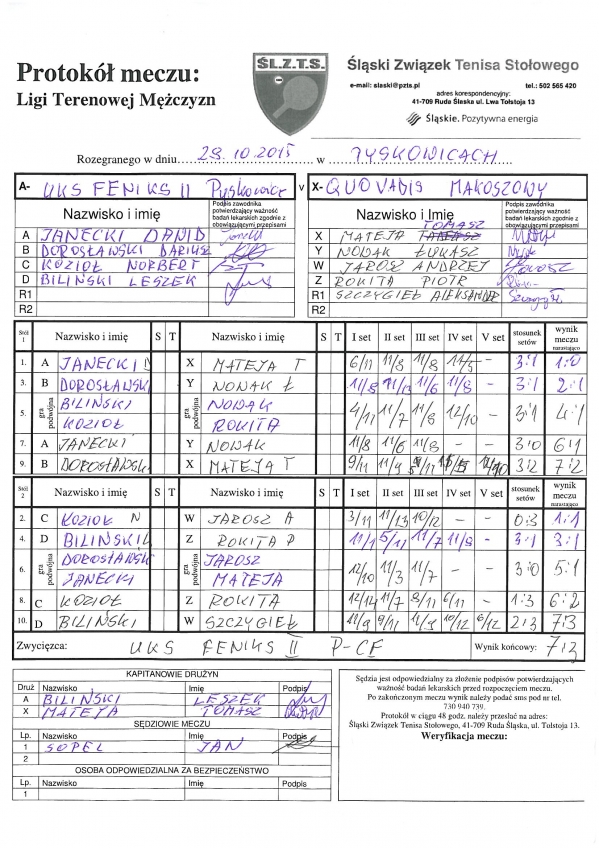 Protokół meczu:
Ligi Terenowej Mężczyzn
ŚL.Z.T.S.
Śląski Związek Tenisa Stołowego
e-mail: slaski@pzts.pl tel.: 502 565 420
adres korespondencyjny:
41-709 Ruda Śląska ul. Lwa Tołstoja 13
Śląskie. Pozytywna energia
Rozegranego w dniu 29.10.2015 w PYSKOWICACH
A- UKS FENIKS II Pyskowice v X- QUO VADIS MAKOSZOWY
Nazwisko i imię Podpis zawodnika potwierdzający ważność badań lekarskich zgodnie z obowiązującymi przepisami Nazwisko i Imię Podpis zawodnika potwierdzający ważność badań lekarskich zgodnie z obowiązującymi przepisami
A JANECKI DAWID X MATEJA TOMASZ
B DOROSŁAWSKI DARIUSZ Y NOWAK ŁUKASZ
C KOZIOŁ NORBERT W JAROSZ ANDRZEJ
D BILIŃSKI LESZEK Z ROKITA PIOTR
R1 R1 SZCZYGIEŁ ALEKSANDER
R2 R2
Stół 1 Nazwisko i imię S T Nazwisko i imię S T I set II set III set IV set V set stosunek setów wynik meczu narastająco
1. A JANECKI D X MATEJA T 6/11 11/8 11/8 - 3:1 1:0
3. B DOROSŁAWSKI Y NOWAK Ł 11/8 11/13 11/6 11/8 - 3:1 2:1
5. gra podwójna BILIŃSKI KOZIOŁ gra podwójna NOWAK ROKITA 4/11 11/7 11/8 12/10 - 3:1 4:1
7. A JANECKI Y NOWAK 11/8 11/6 11/8 - - 3:0 6:1
9. B DOROSŁAWSKI X MATEJA T 9/11 11/9 3:2 7:2
Stół 2 Nazwisko i imię S T Nazwisko i imię S T I set II set III set IV set V set stosunek setów wynik meczu narastająco
2. C KOZIOŁ N W JAROSZ A 3/11 11/13 10/12 - - 0:3 1:1
4. D BILIŃSKI L Z ROKITA P 11/1 5/11 11/7 11/8 - 3:1 3:1
6. gra podwójna DOROSŁAWSKI JANECKI gra podwójna JAROSZ MATEJA 12/10 11/3 11/7 - - 3:0 5:1
8. C KOZIOŁ Z ROKITA 12/14 11/7 8/11 6/11 - 1:3 6:2
10. D BILIŃSKI W SZCZYGIEŁ 11/9 9/11 10/12 6/12 2:3 7:3
Zwycięzca: UKS FENIKS II P-CE Wynik końcowy: 7:3
KAPITANOWIE DRUŻYN
Druż Nazwisko Imię Podpis
A BILIŃSKI LESZEK
X MATEJA TOMASZ
SĘDZIOWIE MECZU
Lp. Nazwisko Imię Podpis
1 SOPEL JAN
2
OSOBA ODPOWIEDZIALNA ZA BEZPIECZEŃSTWO
Lp. Nazwisko Imię Podpis
1
Sędzia jest odpowiedzialny za złożenie podpisów potwierdzających
ważność badań lekarskich przed rozpoczęciem meczu.
Po zakończonym meczu wynik należy podać sms pod nr tel.
730 940 739.
Protokół w ciągu 48 godz. należy przesłać na adres:
Śląski Związek Tenisa Stołowego, 41-709 Ruda Śląska, ul. Tołstoja 13.
Weryfikacja meczu: